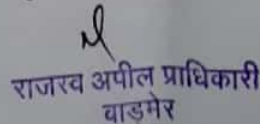 राजस्व अपील प्राधिकारी
वाड़मेर